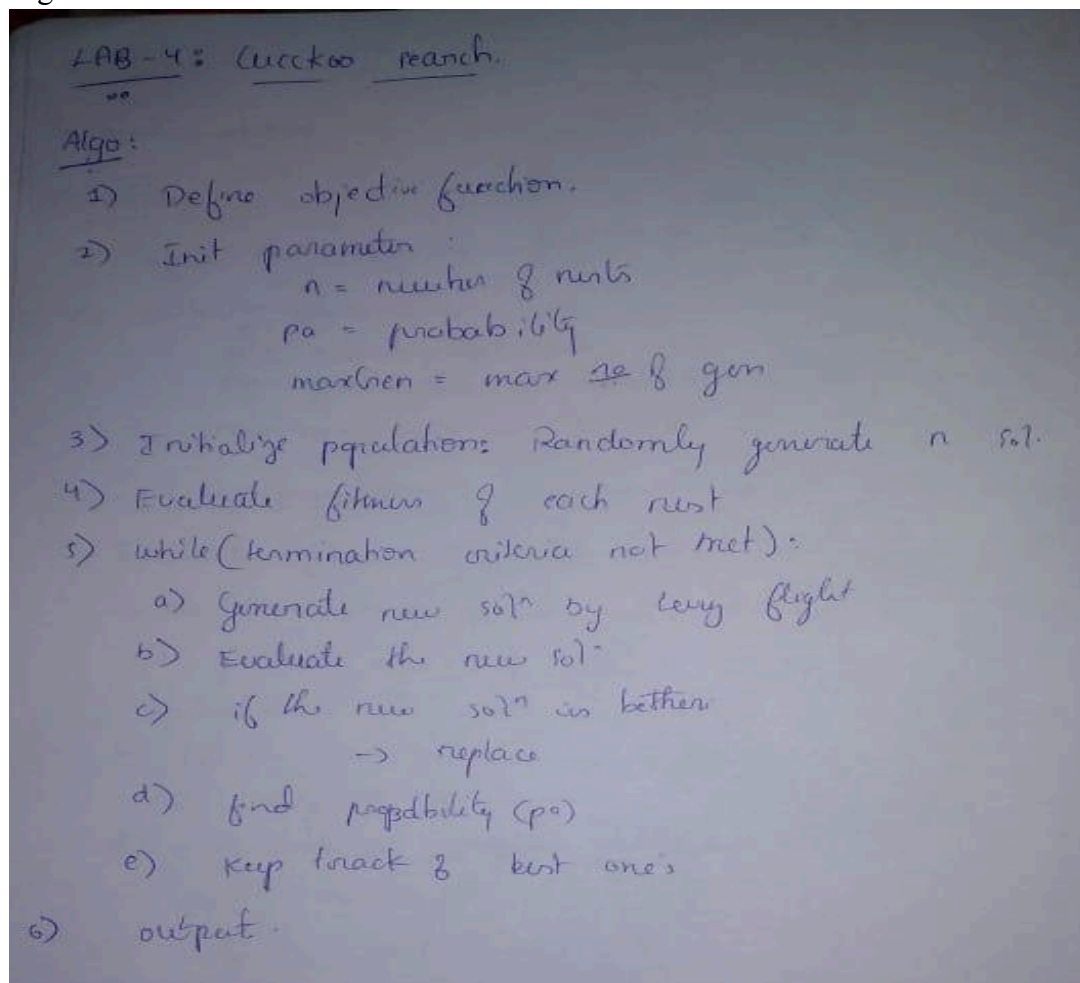 LAB-4: Cucckoo search.
Algo:
1) Define objective function.
2) Init parameter:
n = number of nests
pa = probability
maxGen = max no of gen
3) Initialize population: Randomly generate n sol.
4) Evaluate fitness of each nest
5) while (termination criteria not met):
a) Generate new solⁿ by levy flight
b) Evaluate the new solⁿ
c) if the new solⁿ is better
-> replace
d) find probability (pa)
e) Keep track of best one's
6) output.